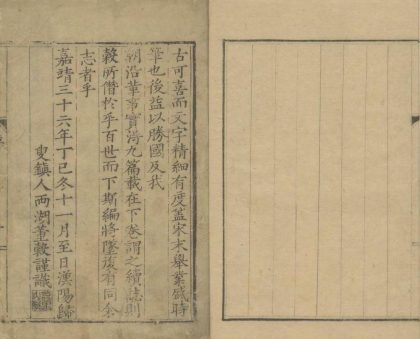 古可喜而文字精細有度蓋宋末舉業盛時
筆也後益以勝國及我
朝沿革事實得九篇載在下卷謂之續誌則
穀所僭於乎百世而下斯編將墜復有同余
志者乎
嘉靖三十六年丁巳冬十一月至日漢陽歸
叟鎮人西湖董穀謹識